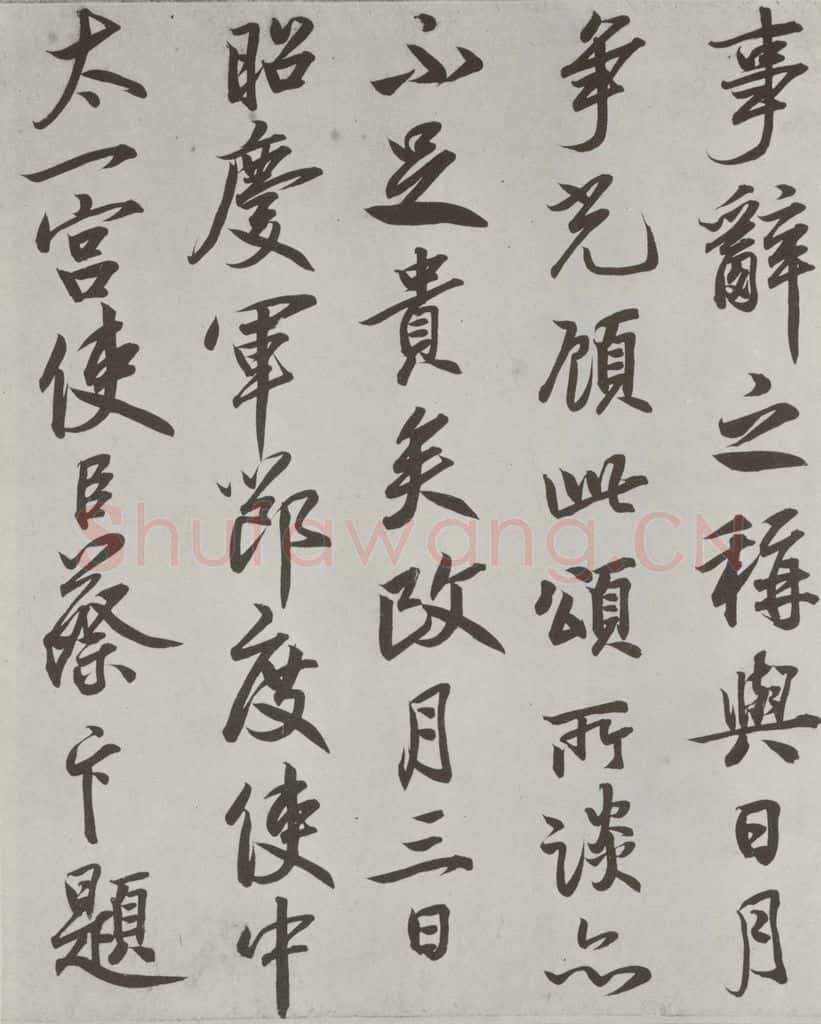 事辭之稱與日月
爭光顧此頌所談亦
不足貴矣政月三日
昭慶軍節度使中
太一宮使臣蔡卞題
Shufawang.CN